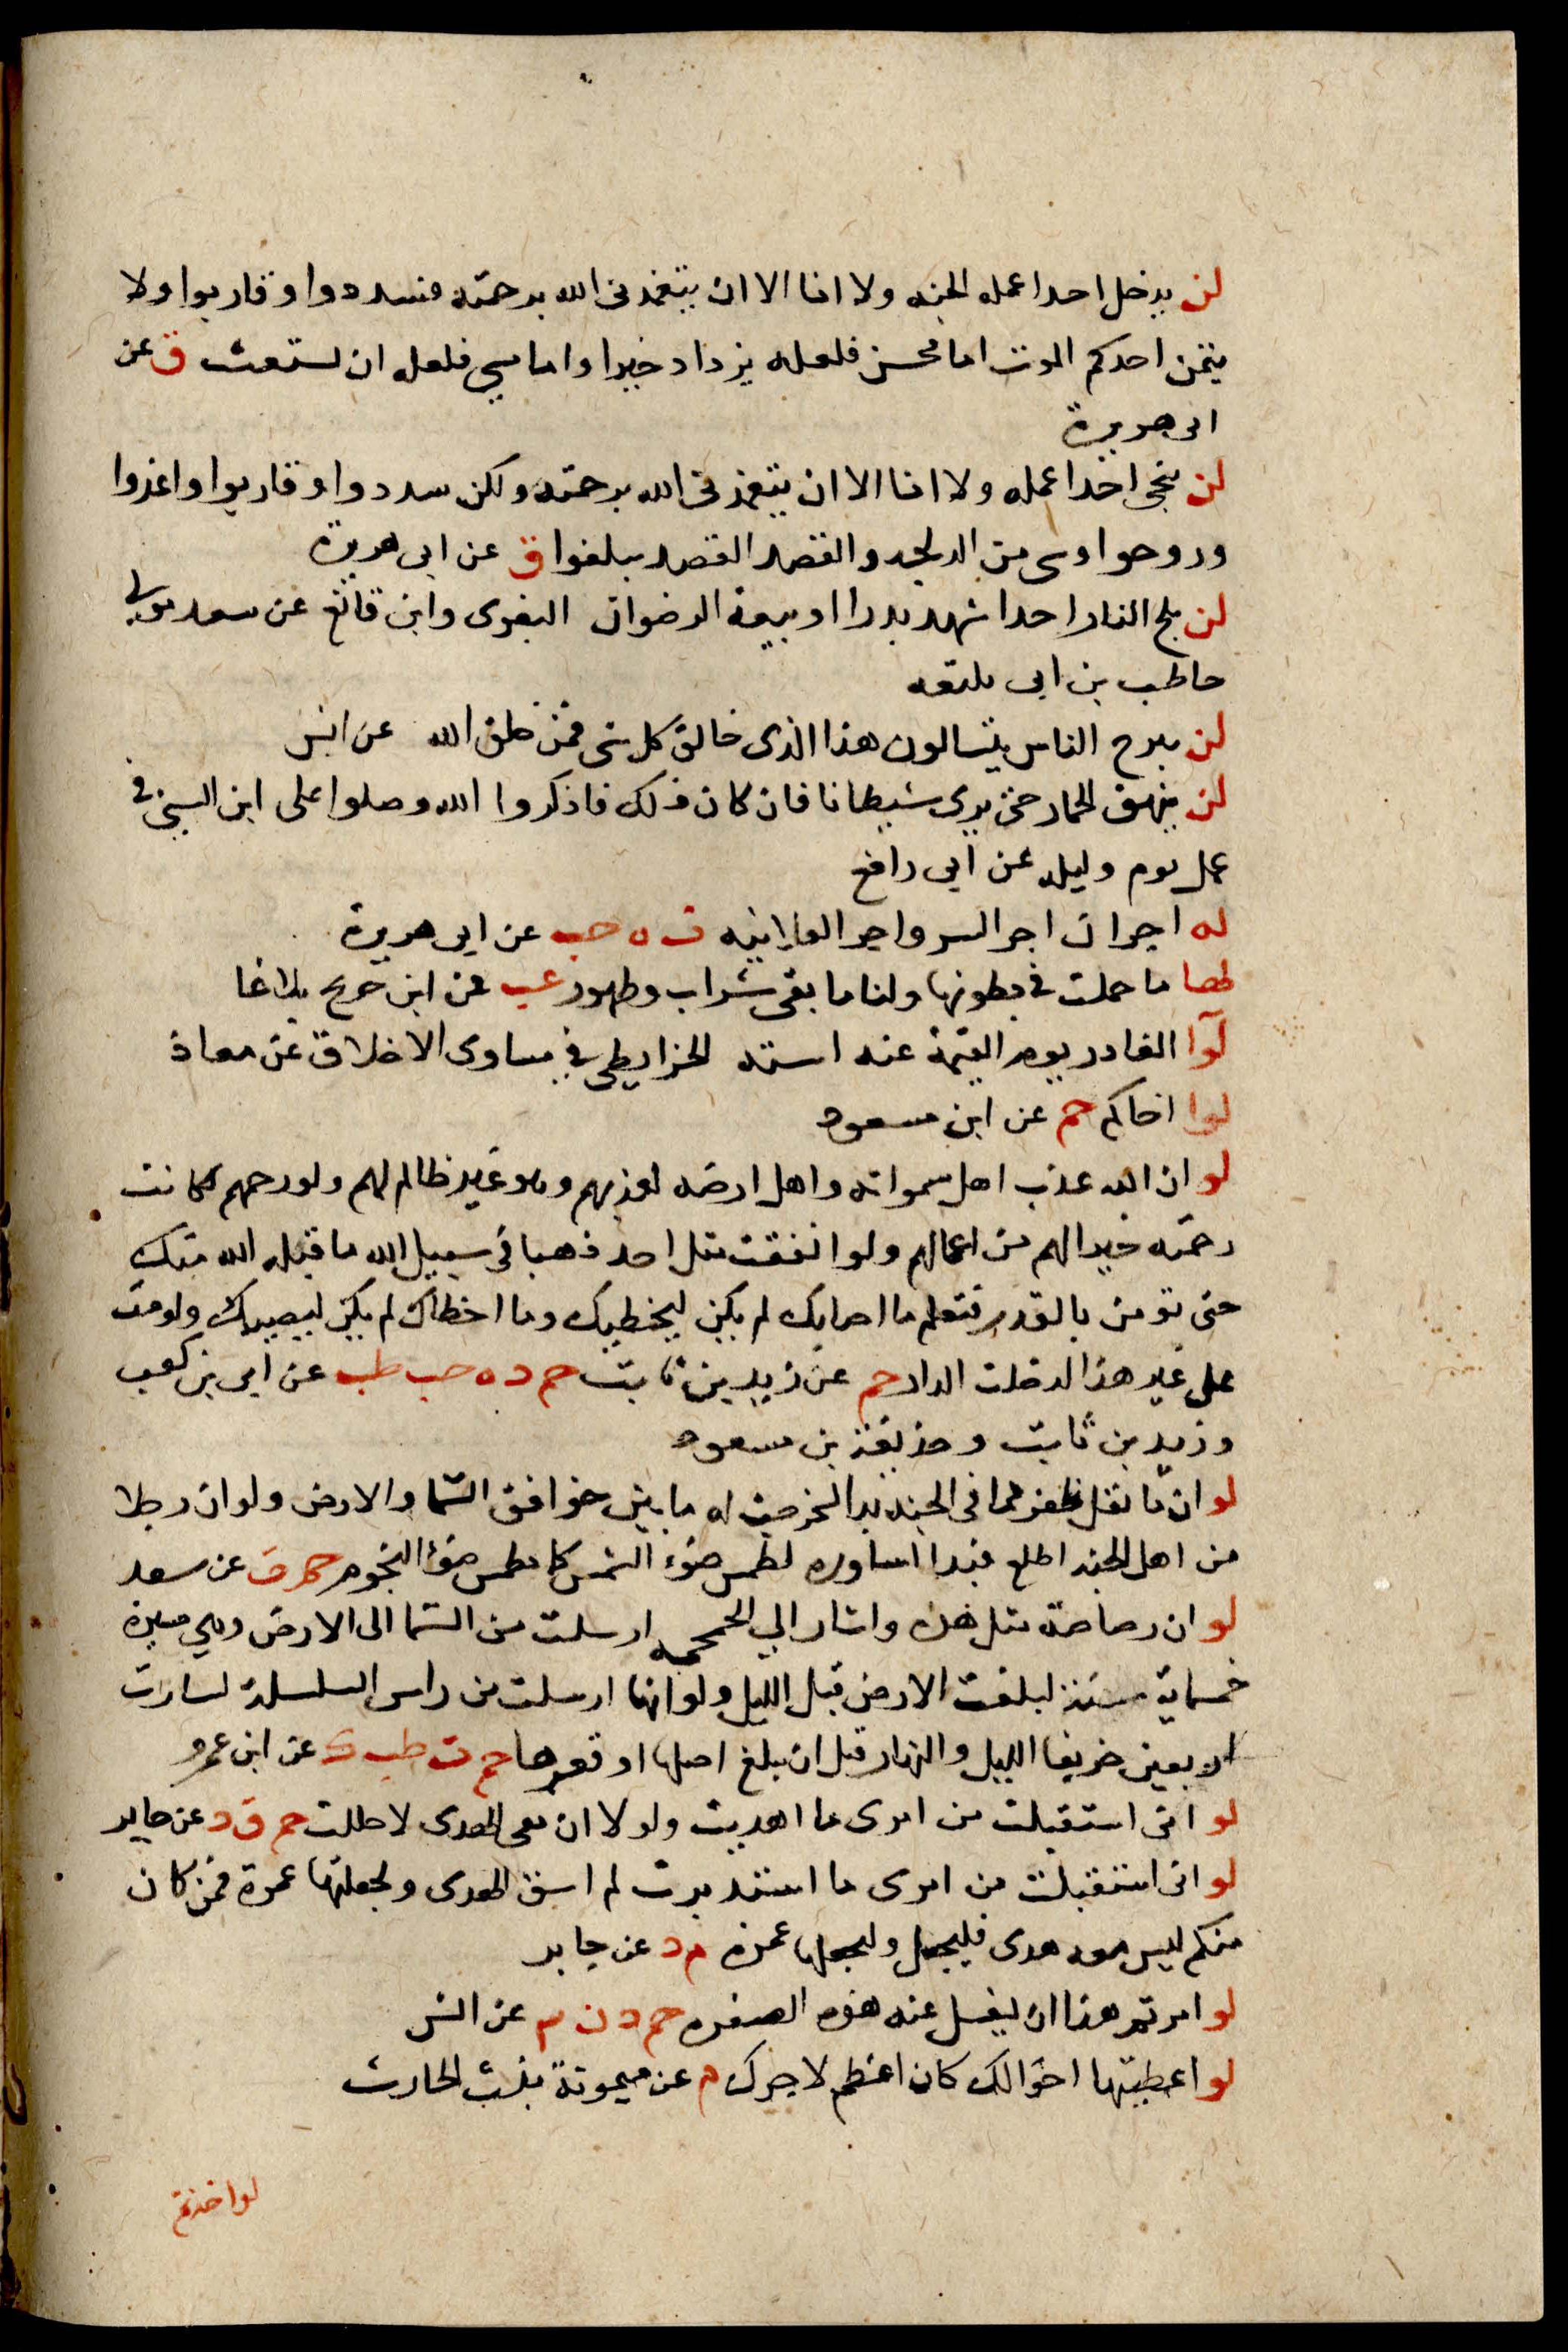 لن يدخل احدا عمله الجنه ولا انا الا ان يتغمدنى الله برحمته فسددوا وقاربوا ولا
يتمن احدكم الموت اما محسن فلعله يزداد خيرا واما مسي فلعله ان يستعتب ق عن
ابى هريرة
لن ينجى احدا عمله ولا انا الا ان يتغمدنى الله برحمته ولكن سددوا وقاربوا واغدوا
وروحوا وشى من الدلجه والقصد القصد تبلغوا ق عن ابى هريرة
لن يلج النار احدا شهد بدرا او بيعة الرضوان البغوى وابن قانع عن سعد مولى
حاطب بن ابى بلتعه
لن يبرح الناس يتسالون هذا الذى خالق كل شى فمن خلق الله عن انس
لن ينهق الحمار حتى يرى شيطانا فان كان ذلك فاذكروا الله وصلوا على ابن السنى فى
عمل يوم وليله عن ابى رافع
له اجران اجر السر واجر العلانيه ت ه حب عن ابى هريرة
لها ما حملت فى بطونها ولنا ما بقى شراب وطهور عب عن ابن جريج بلاغا
لوا الغادر يوم القيمة عند استه الخرايطى فى مساوى الاخلاق عن معاذ
لوا اخاكم حم عن ابن مسعود
لو ان الله عذب اهل سمواته واهل ارضه لعذبهم وهو غير ظالم لهم ولو رحمهم لكانت
رحمته خيرا لهم من اعمالهم ولو انفقت مثل احد ذهبا فى سبيل الله ما قبله الله منك
حتى تومن بالقدر فتعلم ما اصابك لم يكن ليخطيك وما اخطاك لم يكن ليصيبك ولو مت
على غير هذا لدخلت النار حم عن زيد بن ثابت حم د ه حب طب عن ابى بن كعب
وزيد بن ثابت وحذيفة بن مسعود
لو ان ما يقل ظفر مما فى الجنه بدا لتزخرفت له ما بين خوافق السما والارض ولو ان رجلا
من اهل الجنه اطلع فبدا اساوره لطمس ضوء الشمس كما تطمس ضوء النجوم حم ت عن سعد
لو ان رصاصة مثل هذه واشار الى الجمجمه ارسلت من السما الى الارض وهي مسيرة
خمسماية سنة لبلغت الارض قبل الليل ولو انها ارسلت من راس السلسلة لسارت
اربعين خريفا الليل والنهار قبل ان تبلغ اصلها او قعرها حم ت طب ك عن ابن عمرو
لو انى استقبلت من امرى ما اهديت ولولا ان معى الهدى لاحللت حم ق د عن جابر
لو انى استقبلت من امرى ما استدبرت لم اسق الهدى ولجعلتها عمرة فمن كان
منكم ليس معه هدى فليحل وليجعلها عمرة م د عن جابر
لو امرتم هذا ان يغسل عنه هذه الصفره حم د ن عن انس
لو اعطيتها اخوالك كان اعظم لاجرك م عن ميمونة بنت الحارث
لو اخذتم